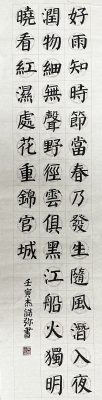 好雨知時節當春乃發生隨風潛入夜
潤物細無聲野徑雲俱黑江船火獨明
曉看紅濕處花重錦官城
壬寅書